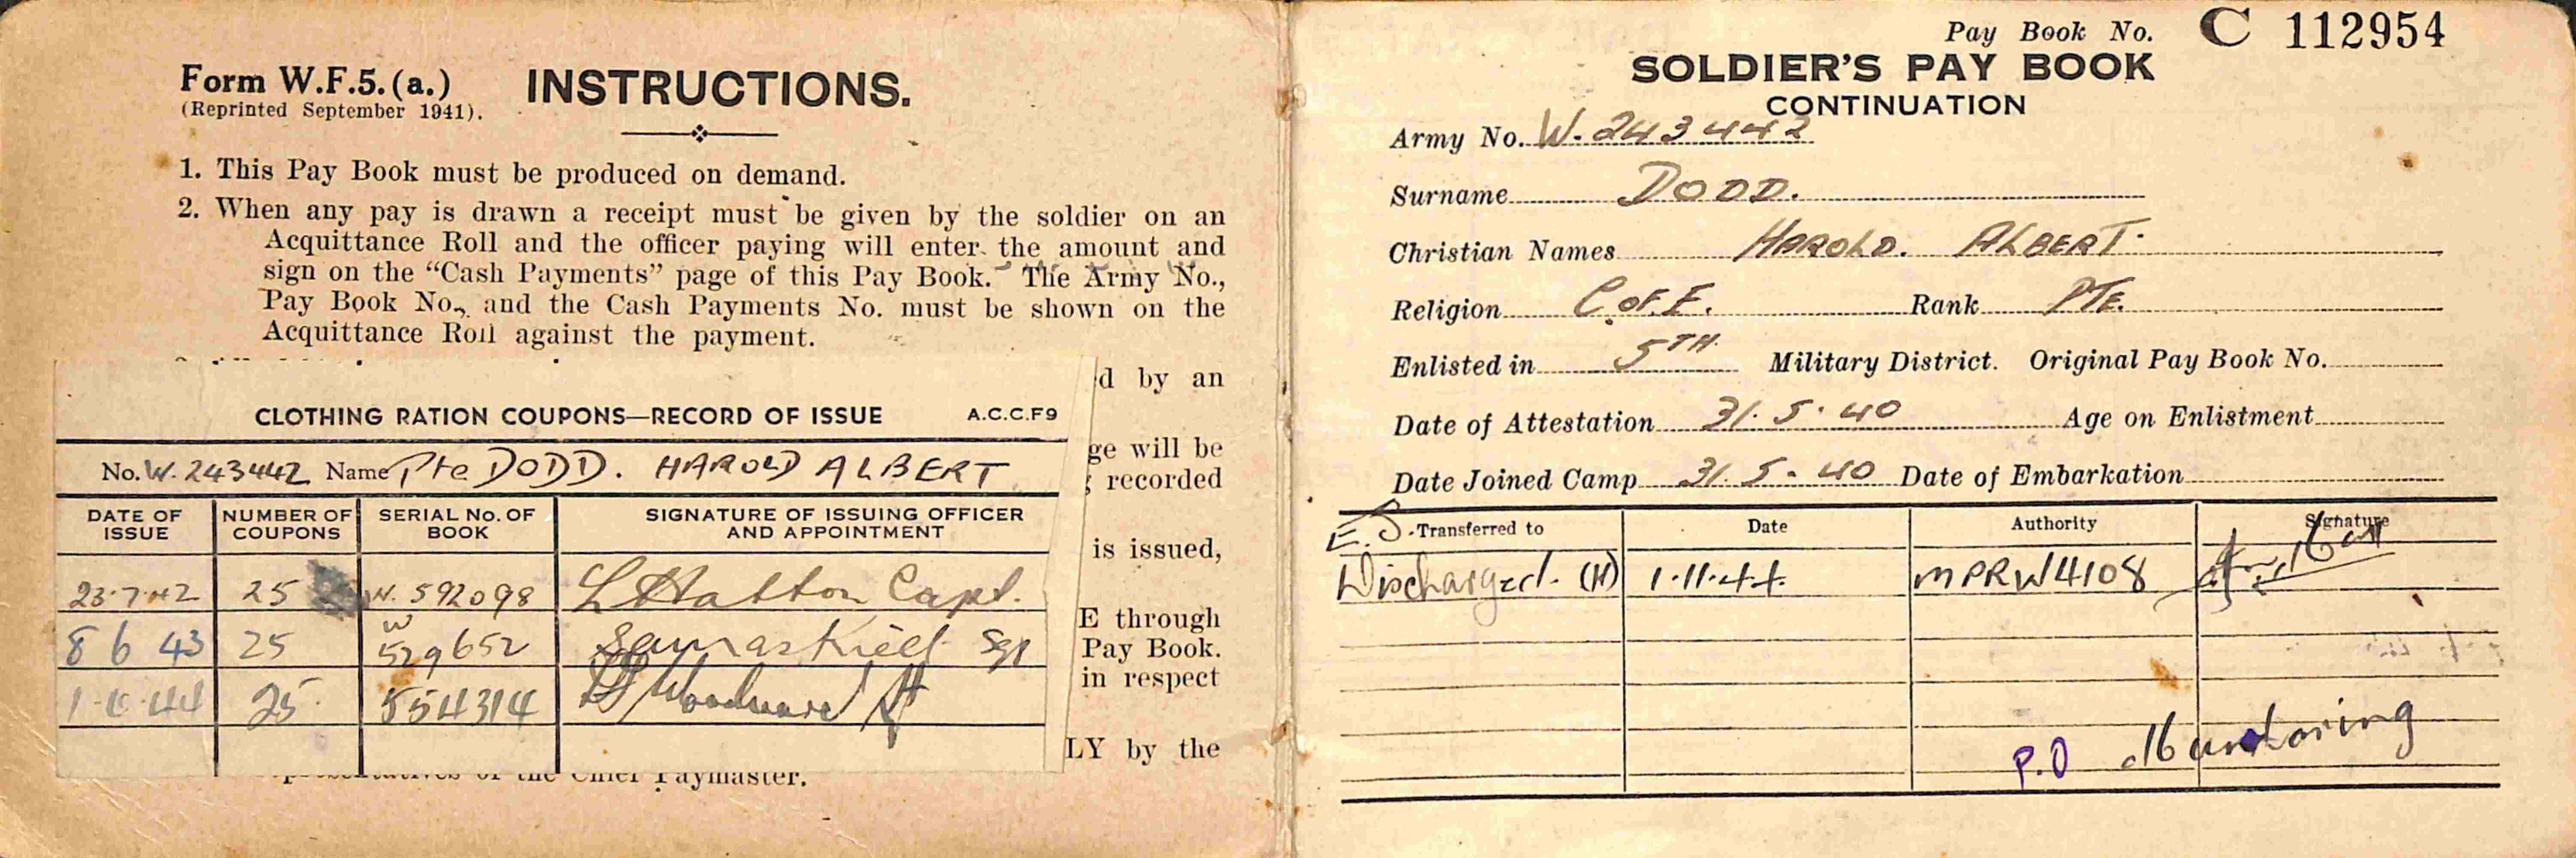 Form W.F.5.(a.) INSTRUCTIONS.
(Reprinted September 1941).
1. This Pay Book must be produced on demand.
2. When any pay is drawn a receipt must be given by the soldier on an
Acquittance Roll and the officer paying will enter the amount and
sign on the “Cash Payments” page of this Pay Book. The Army No.,
Pay Book No., and the Cash Payments No. must be shown on the
Acquittance Roll against the payment.
d by an
CLOTHING RATION COUPONS—RECORD OF ISSUE A.C.C.F9
ge will be
No. W. 243442 Name Pte DODD. HAROLD ALBERT
recorded
DATE OF ISSUE NUMBER OF COUPONS SERIAL No. OF BOOK SIGNATURE OF ISSUING OFFICER AND APPOINTMENT
is issued,
23.7.42 25 W. 592098 L Hatton Capt.
E through
8 6 43 25 W 529652 Sgt
Pay Book.
in respect
44 25 554314 Woodward
LY by the
of the Chief Paymaster.
Pay Book No. C 112954
SOLDIER'S PAY BOOK
CONTINUATION
Army No. W. 243442
Surname DODD.
Christian Names HAROLD. ALBERT.
Religion C. OF. E. Rank PTE.
Enlisted in 5TH Military District. Original Pay Book No.
Date of Attestation 31. 5. 40 Age on Enlistment
Date Joined Camp 31. 5. 40 Date of Embarkation
Transferred to Date Authority Signature
Discharged. (H) 1.11.44. MPRW4108
P.O Mundaring